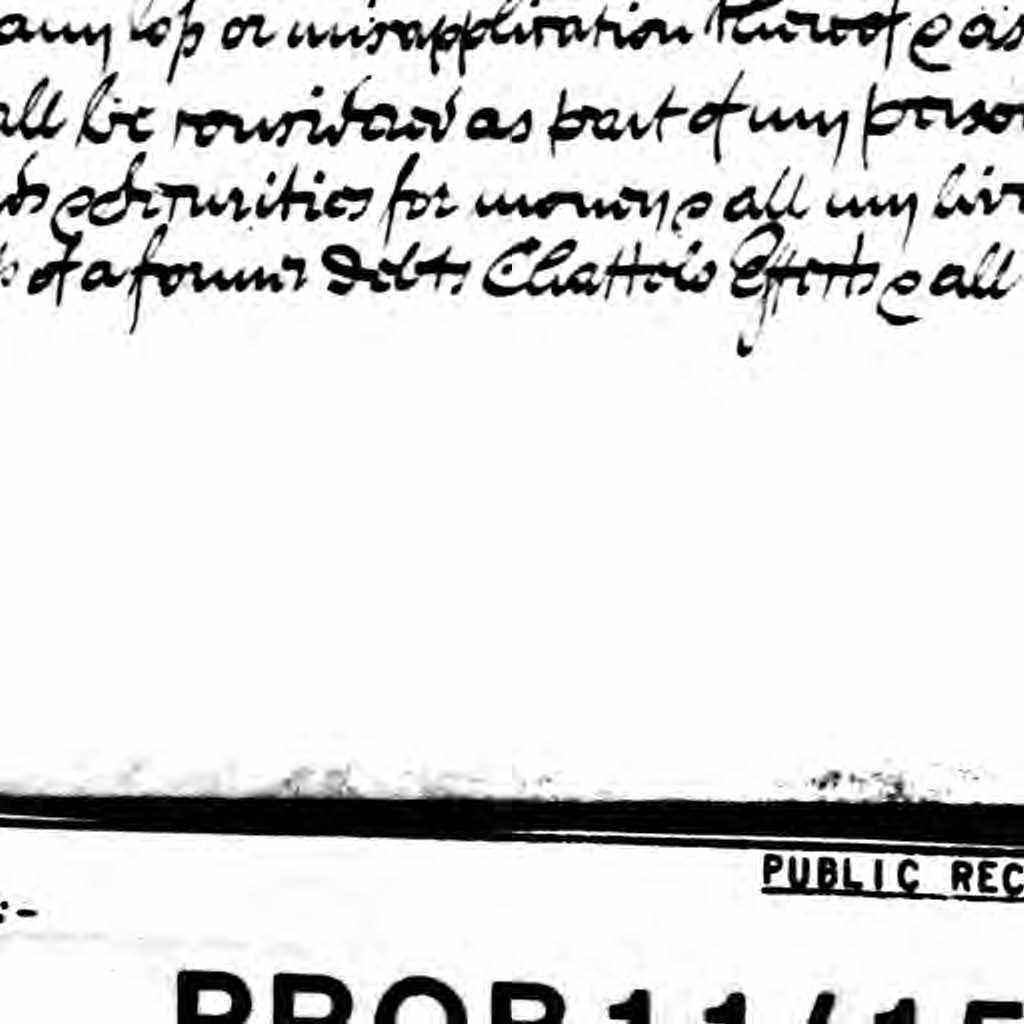 any loss or misapplication thereof & as
all be considered as part of my perso
ds & Securities for money & all my liv
s of a former Debts Chattels Effects & all
PUBLIC REC
:-
PROB 11/15